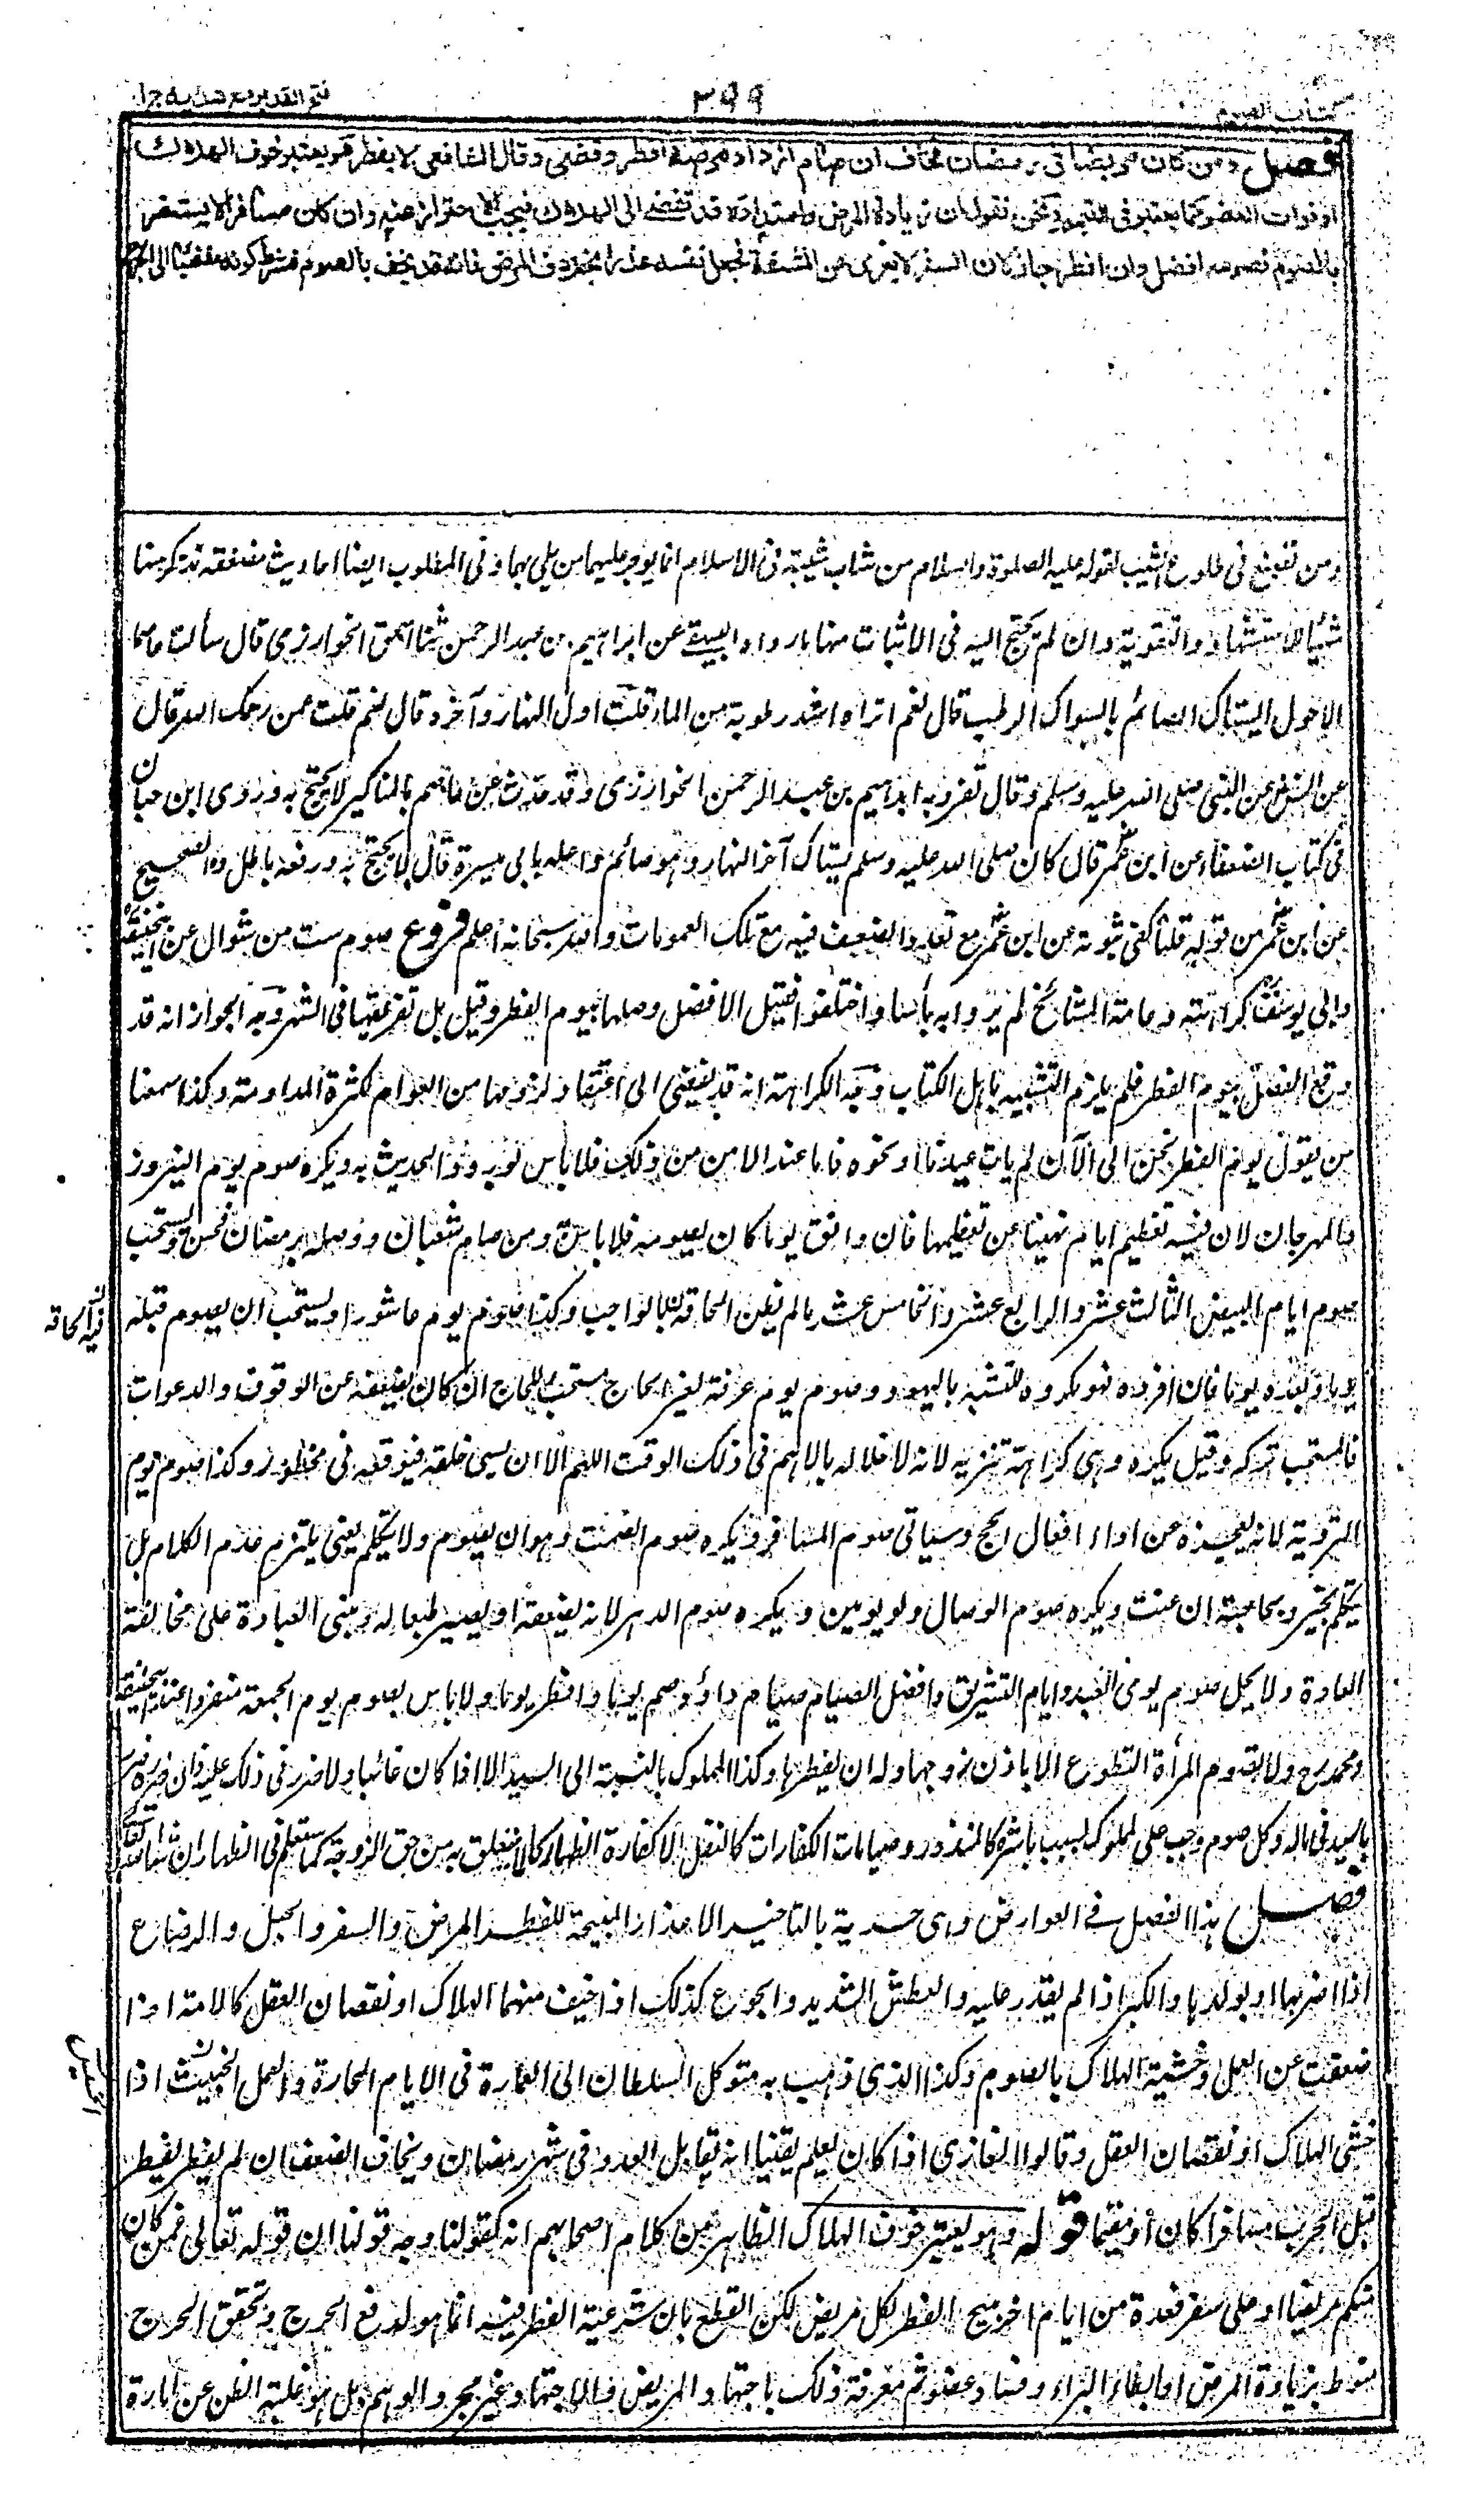 كتاب الصوم
٣٩٩
فتح القدير مع هداية ج ا
فصل ومن كان مريضا في رمضان فخاف ان صام ازداد مرضه افطر وقضى وقال الشافعي لا يفطر هو يعتبر خوف الهلاك
او فوات العضو كما يعتبر في التيمم ونحن نقول ان زيادة المرض وامتداده قد تفضى الى الهلاك فيجب الاحتراز عنه وان كان مسافرا لا يستضر
بالصوم فصومه افضل وان افطر جاز لان السفر لا يعرى عن المشقة فجعل نفسه عذرا بخلاف المرض فانه قد يخف بالصوم فشرط كونه مفضيا الى الحرج
ومن نفع في طلوع الشيب لقوله عليه الصلوة والسلام من شاب شيبة في الاسلام انما يوجر عليهما من بلي بهما وفي المطلوب ايضا احاديث مضعفة نذكر منها
شيئا للاستشهاد والتقوية وان لم يحتج اليه في الاثبات منها ما رواه البيهقي عن ابراهيم بن عبد الرحمن ثنا اسحق الخوارزمي قال سألت عاصما
الاحول ايستاك الصائم بالسواك الرطب قال نعم اتراه اشد رطوبة من الماء قلت اول النهار وآخره قال نعم قلت عمن رحمك الله قال
عن انس عن النبي صلى الله عليه وسلم وقال تفرد به ابراهيم بن عبد الرحمن الخوارزمي وقد حدث عن عاصم بالمناكير لا يحتج به وروى ابن حبان
في كتاب الضعفاء عن ابن عمر قال كان صلى الله عليه وسلم يستاك آخر النهار وهو صائم واعله بابي ميسرة قال لا يحتج به ورفعه باطل والصحيح
عن ابن عمر من قوله قلنا كفى ثبوته عن ابن عمر مع تعدد الضعيف فيه مع تلك العمومات والله سبحانه اعلم فروع صوم ست من شوال عن ابي حنيفة
وابي يوسف كراهته وعامة المشائخ لم يروا به بأسا واختلفوا فقيل الافضل وصلها بيوم الفطر وقيل بل تفريقها في الشهر وجه الجواز انه قد
وقع الفصل بيوم الفطر فلم يلزم التشبيه باهل الكتاب وجه الكراهة انه قد يفضي الى اعتقاد لزومها من العوام لكثرة المداومة وكذا سمعنا
من يقول يوم الفطر نحن الى الآن لم يات عيدنا او نحوه فاما عند الامن من ذلك فلا باس لورود الحديث به ويكره صوم يوم النيروز
والمهرجان لان فيه تعظيم ايام نهينا عن تعظيمها فان وافق يوما كان يصومه فلا باس ومن صام شعبان ووصله برمضان فحسن ويستحب
صوم ايام البيض الثالث عشر والرابع عشر والخامس عشر ما لم يظن الحاقه بالواجب وكذا صوم يوم عاشورا ويستحب ان يصوم قبله
يوما وبعده يوما فان افرده فهو مكروه للتشبه باليهود وصوم يوم عرفة لغير الحاج مستحب وللحاج ان كان يضعفه عن الوقوف والدعوات
فالمستحب تركه وقيل يكره وهي كراهة تنزيه لانه لاخلاله بالاهم في ذلك الوقت اللهم الا ان يسئ خلقه فيوقعه في محظور وكذا صوم يوم
التروية لانه يعجزه عن اداء افعال الحج وسياتي صوم المسافر ويكره صوم الصمت وهو ان يصوم ولا يتكلم يعني يلتزم عدم الكلام بل
يتكلم بخير وبحاجته ان عنت ويكره صوم الوصال ولو يومين ويكره صوم الدهر لانه يضعفه او يصير طبعا له ومبنى العبادة على مخالفة
العادة ولا يحل صوم يومي العيد وايام التشريق وافضل الصيام صيام داؤد صم يوما وافطر يوما ولا باس بصوم يوم الجمعة منفردا عند ابي حنيفة
ومحمد رح ولا تصوم المرأة التطوع الا باذن زوجها وله ان يفطرها وكذا المملوك بالنسبة الى السيد الا اذا كان غائبا ولا ضرر في ذلك عليه فان ضرره ضرر
بالسيد في ماله وكل صوم وجب على المملوك بسبب باشره كالمنذور وصيامات الكفارات كالنفل الا كفارة الظهار لما يتعلق به من حق الزوجة كما ستعلم في الظهار ان شاء الله تعالى
فصل هذا الفصل في العوارض وهي حرية بالتاخير الاعذار المبيحة للفطر المرض والسفر والحبل والرضاع
اذا اضر بها او بولدها والكبر اذا لم يقدر عليه والعطش الشديد والجوع كذلك اذا خيف منهما الهلاك او نقصان العقل كالامة اذا
ضعفت عن العمل وخشية الهلاك بالصوم وكذا الذي ذهب به متوكل السلطان الى العمارة في الايام الحارة والعمل الحثيث اذا
خشي الهلاك او نقصان العقل وقالوا الغازي اذا كان يعلم يقينا انه يقابل العدو في شهر رمضان ويخاف الضعف ان لم يفطر يفطر
قبل الحرب مسافرا كان او مقيما قوله وهو يعتبر خوف الهلاك الظاهر من كلام اصحابهم انه كقولنا وجه قولنا ان قوله تعالى فمن كان
منكم مريضا او على سفر فعدة من ايام اخر يبيح الفطر لكل مريض لكن القطع بان شرعية الفطر فيه انما هو لدفع الحرج وتحقق الحرج
منوط بزيادة المرض او ابطاء البراء وفساد عضو ثم معرفة ذلك باجتهاد المريض والاجتهاد غير مجرد الوهم بل هو غلبة الظن عن امارة